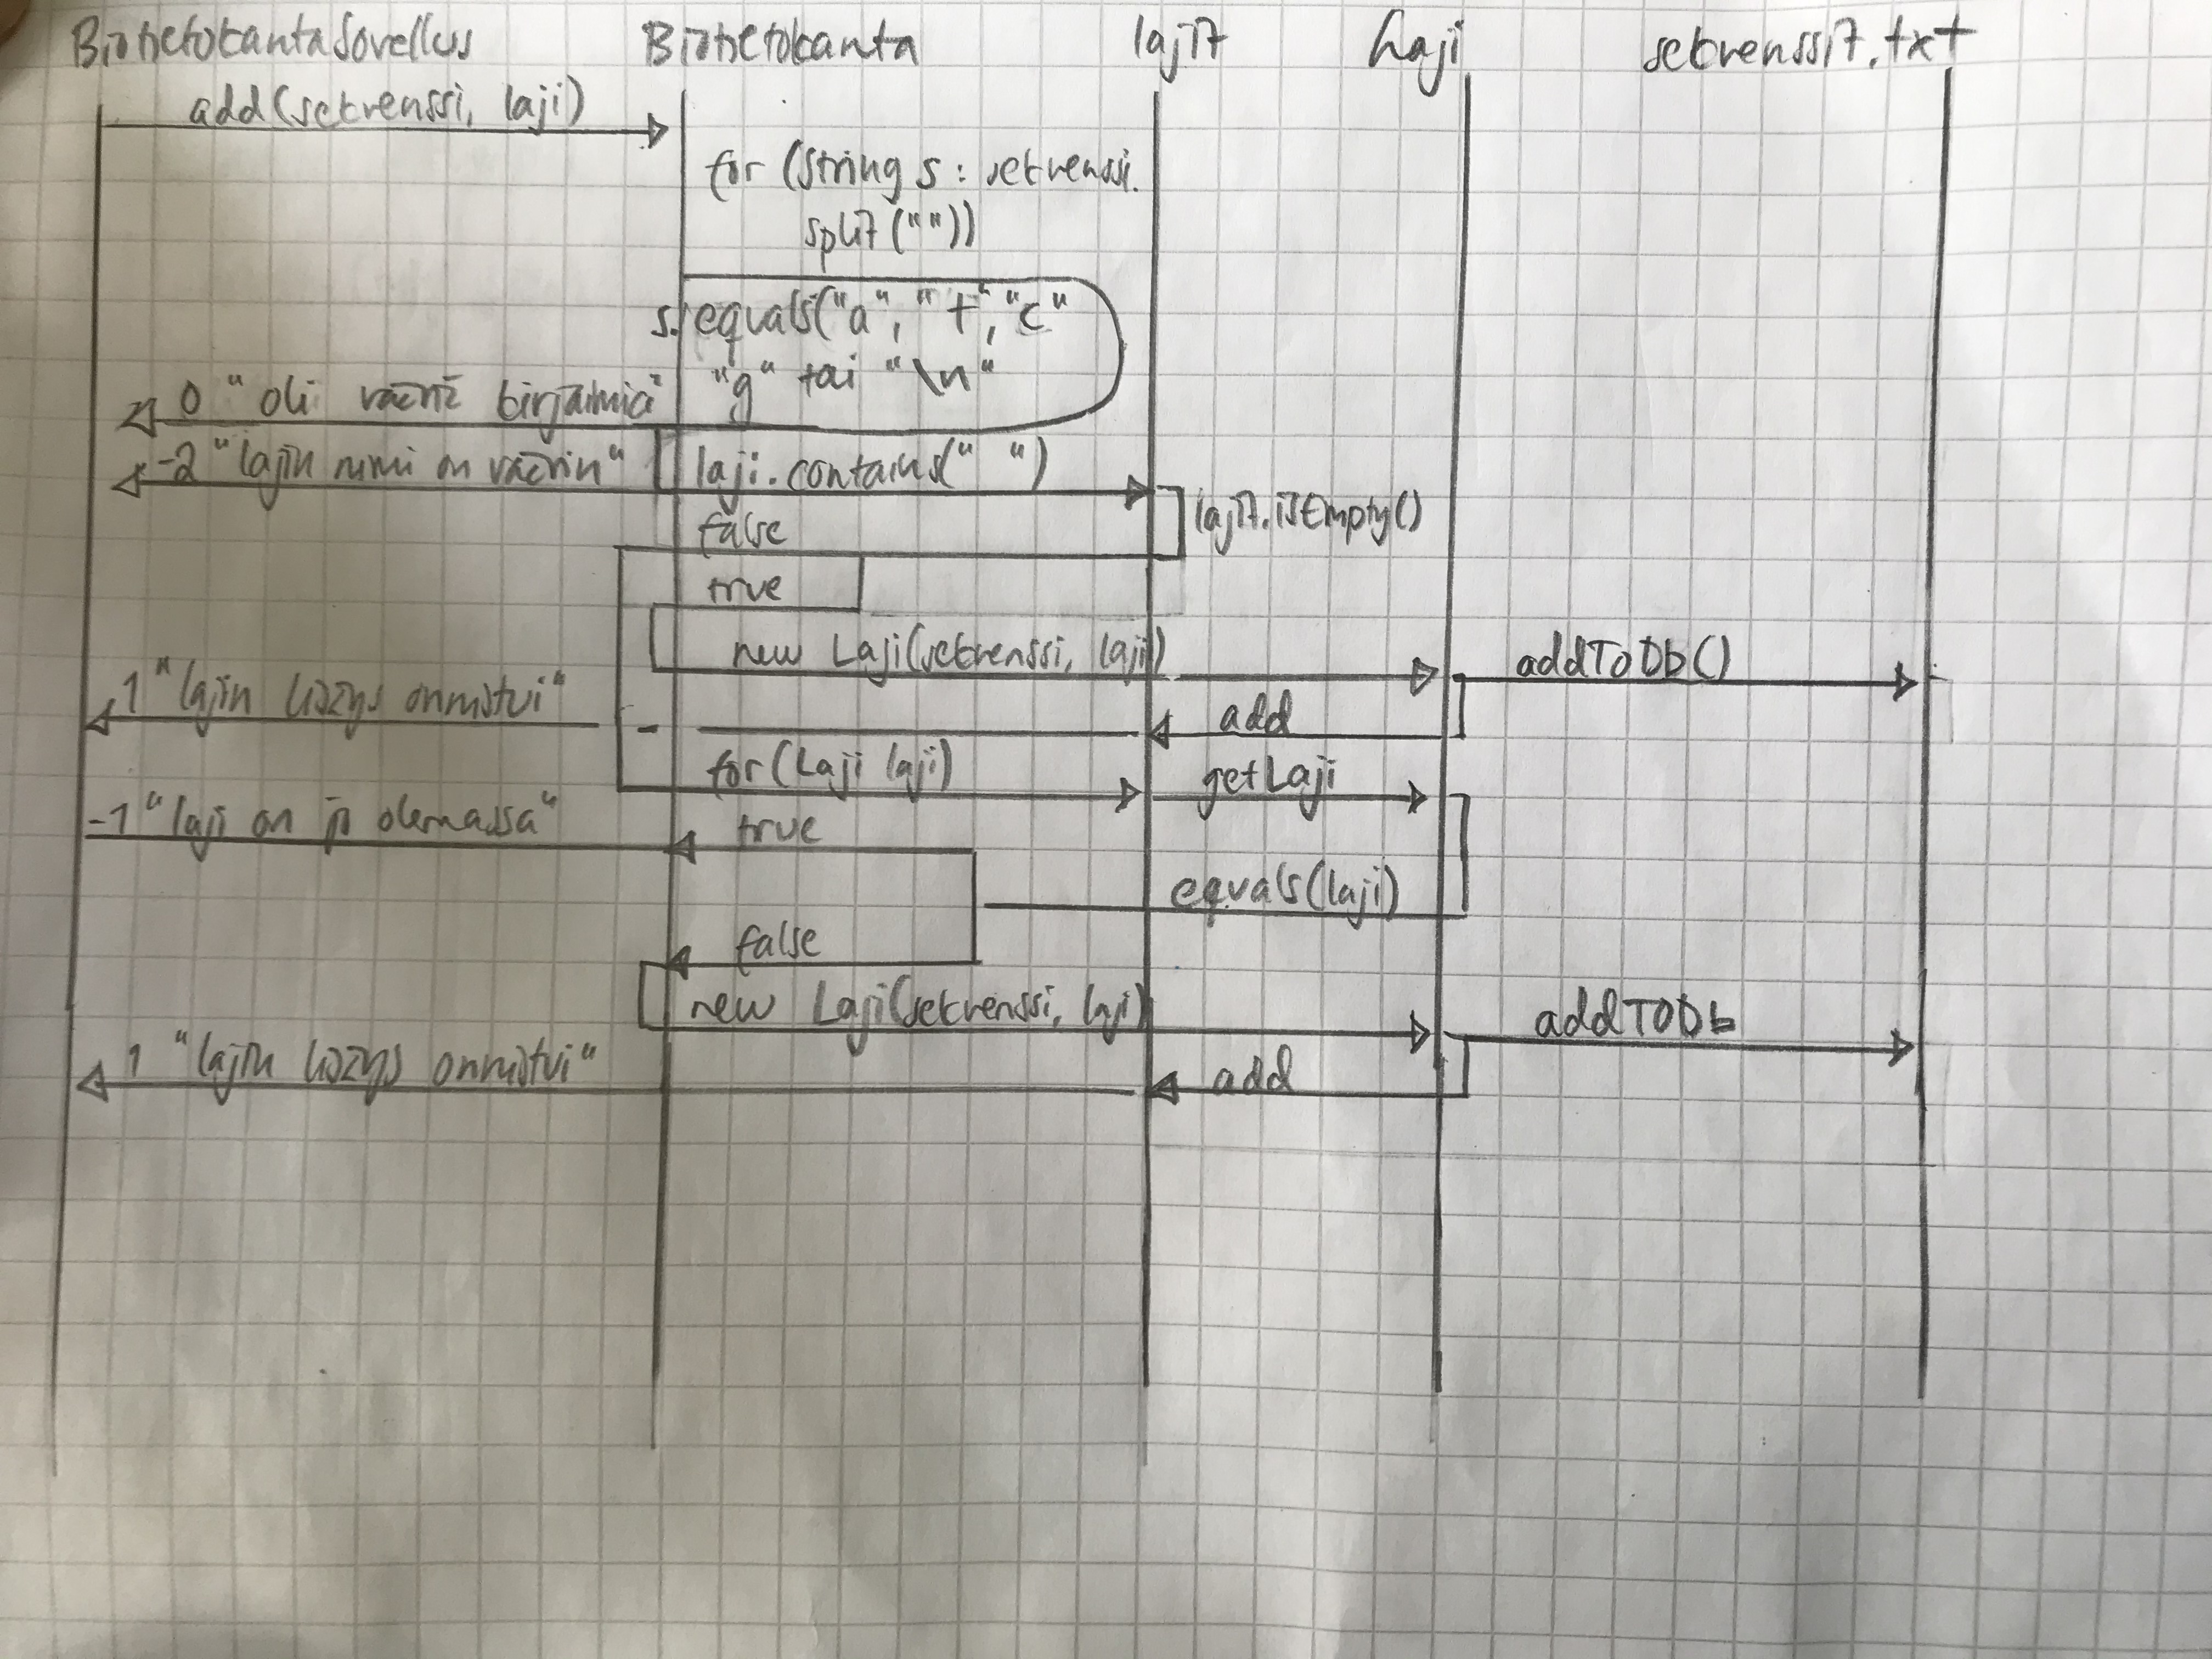 BiotietokantaSovellus Biotietokanta lajit Laji sekvenssit.txt
add(sekvenssi, laji)
for (String s : sekvenssi.
split(""))
s.equals("a", "t", "c"
"g" tai "\n"
0 "oli vääriä kirjaimia"
-2 "lajin nimi on väärin" laji.contains(" ")
lajit.isEmpty()
false
true
new Laji(sekvenssi, laji) addToDb()
1 "lajin lisäys onnistui" add
for(Laji laji) getLaji
-1 "laji on jo olemassa" true
equals(laji)
false
new Laji(sekvenssi, laji) addToDb
1 "lajin lisäys onnistui" add